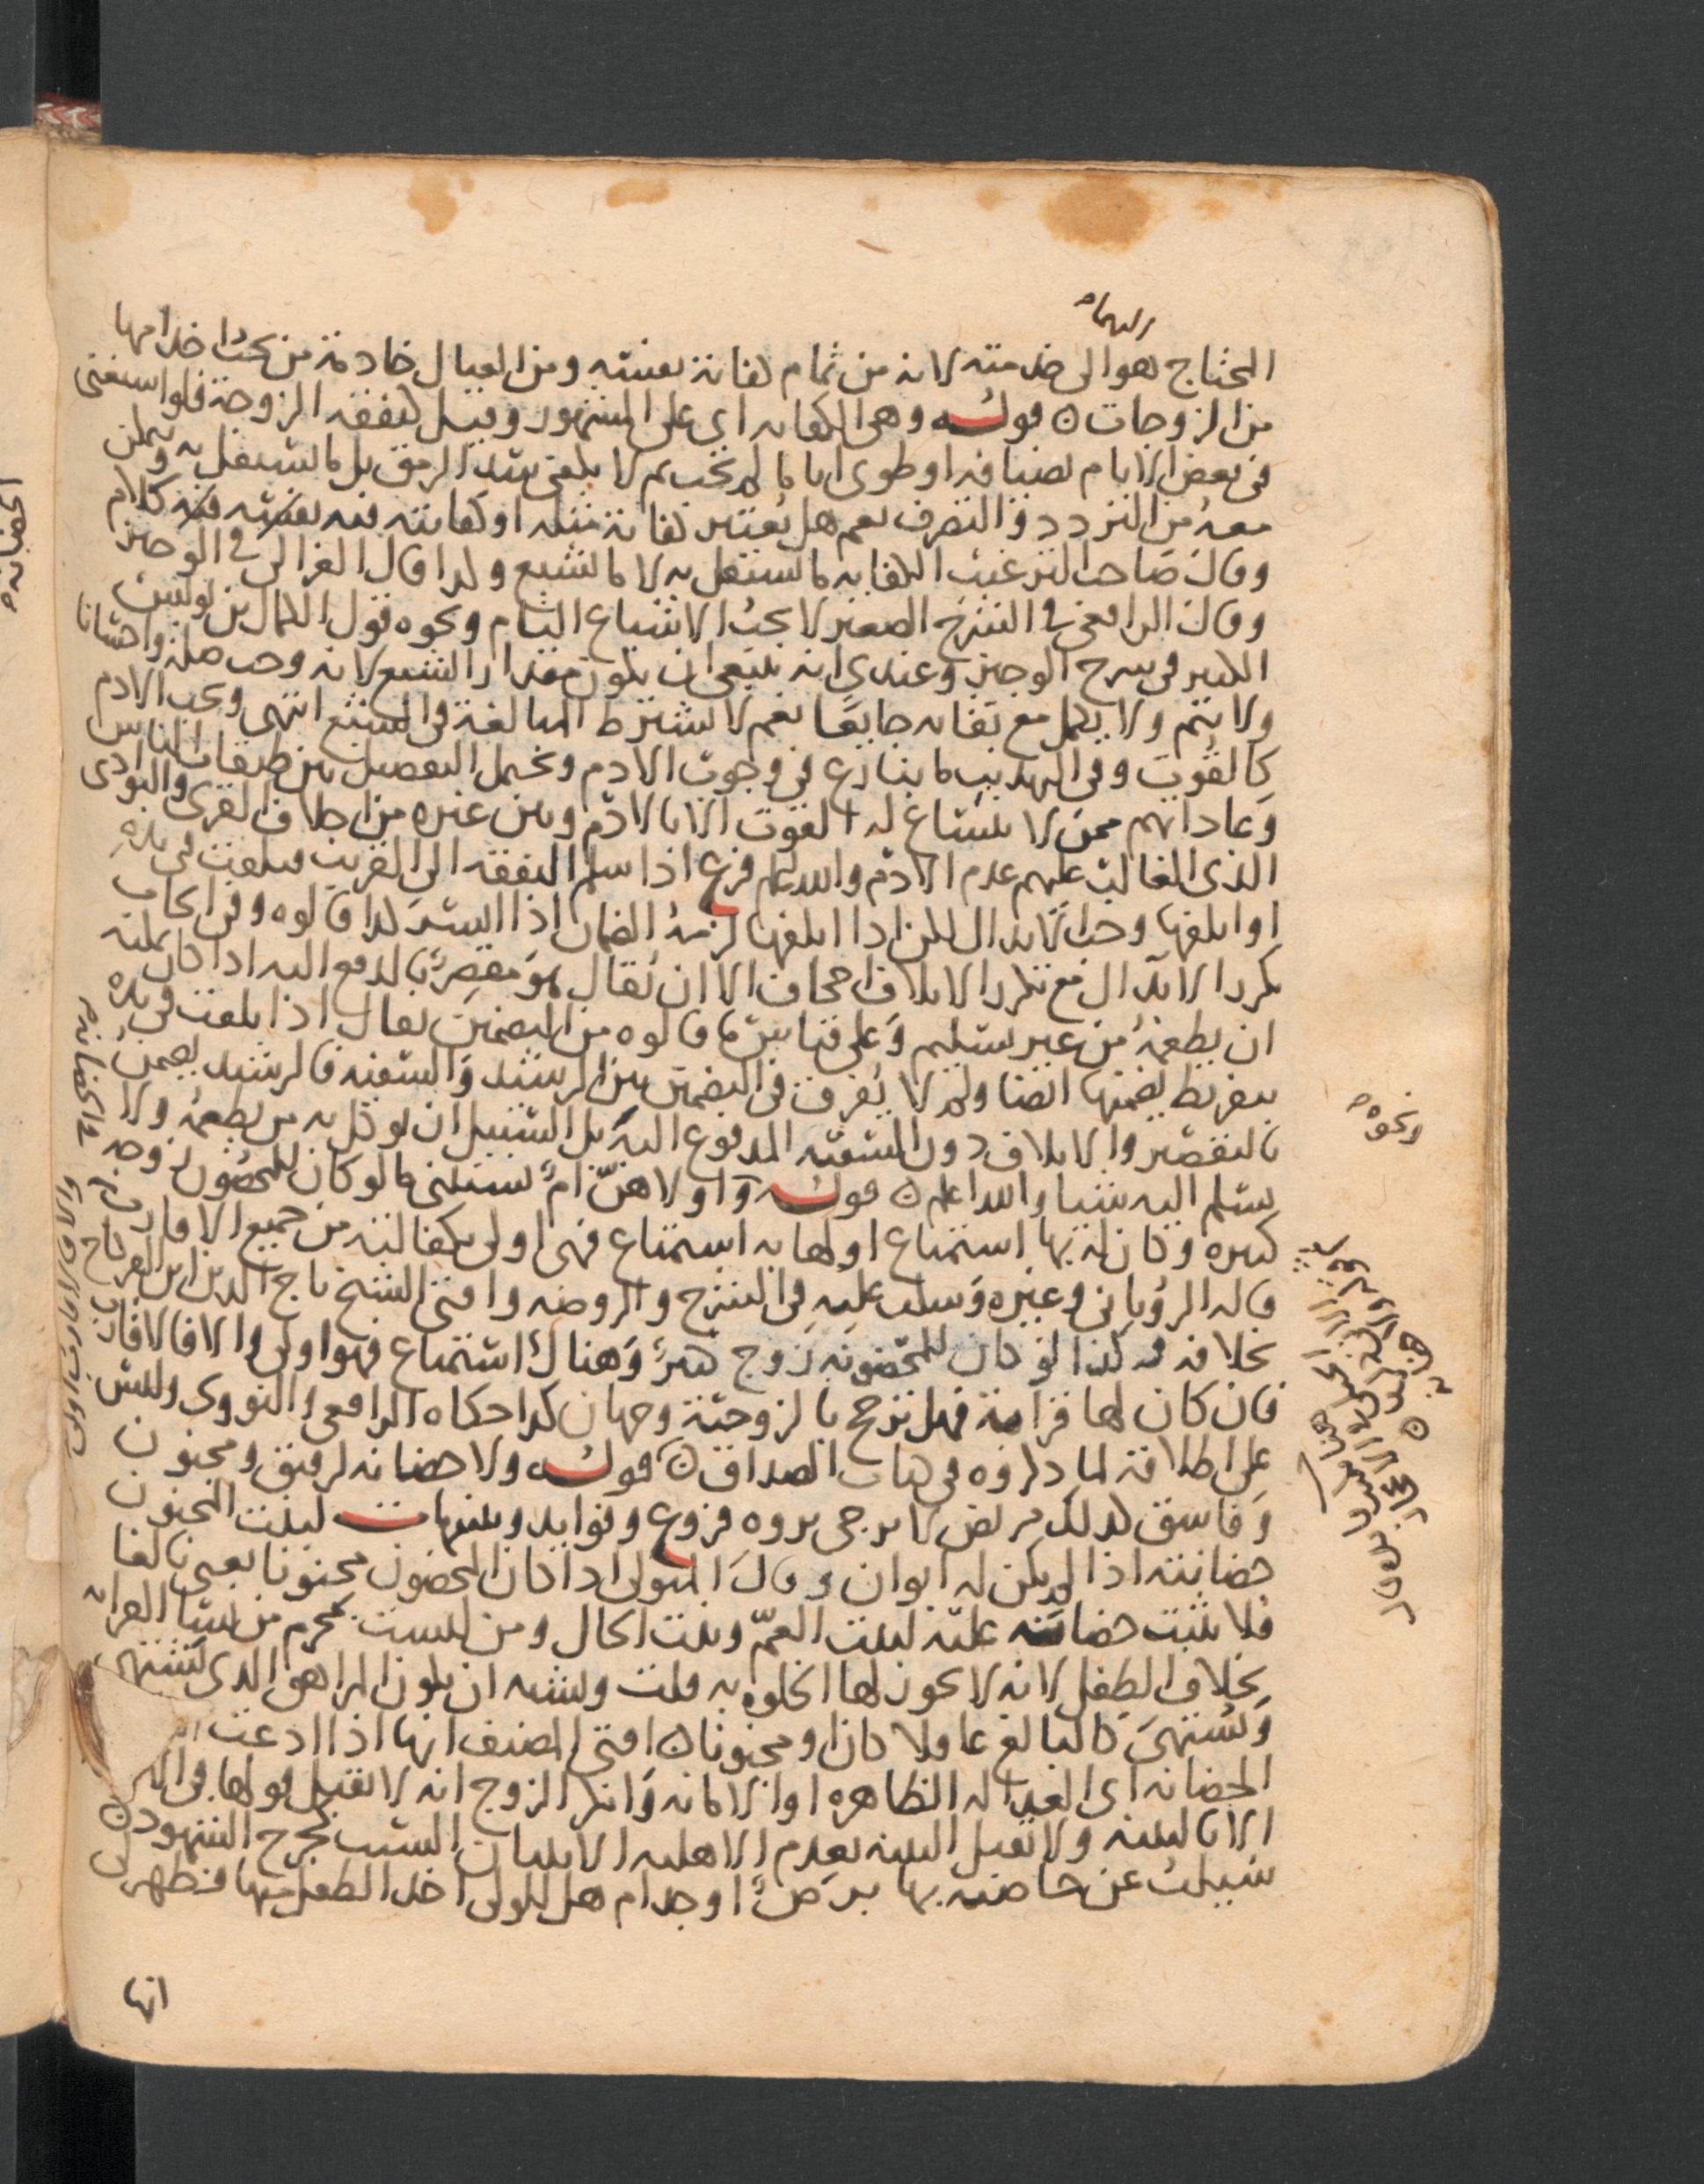 المحتاج هو الى خدمته لانه من تمام كفاية نفسه ومن العيال خادمة من يجب اخدامها
من الزوجات ن قوله وهي الكفاية اي على المشهور وقيل كنفقة الزوجة فلو استغنى
في بعض الايام لضيافة او طوى اياما لم تجب ثم لا يكفي سد الرمق بل ما يستقل به ويمكن
معه من التردد والتصرف نعم هل يعتبر كفاية مثله او كفايته فيه نفسه فيه كلام
وقال صاحب الترغيب الكفاية ما يستقل به لا ما يشبع ولذا قال الغزالي في الوجيز
وقال الرافعي في الشرح الصغير لا يجب الاشباع التام ونحوه قول الكمال بن يونس
الكبير في شرح الوجيز وعندي انه ينبغي ان يكون مقدار الشبع لانه وجب صلة واحسانا
ولا يتم ولا يكمل مع بقائه جايعا نعم لا يشترط المبالغة في الشبع انتهى ويجب الادم
كالقوت وفي التهذيب ما ينازع في وجوب الادم ويحتمل التفصيل بين طبقات الناس
وعاداتهم ممن لا ينساغ له القوت الا بالادم وبين غيره من اجلاف القرى والبوادي
الذي الغالب عليهم عدم الادم والله اعلم فرع اذا سلم النفقة الى القريب فتلفت في يده
او اتلفها وجب الابدال لكن اذا اتلفها لزمه الضمان اذا ايسر كذا قالوه وفي ايجاب
تكرر الابدال مع تكرر الاتلاف اجحاف الا ان يقال هو مقصر بالدفع اليه اذا كان يمكنه
ان يطعمه من غير تسليم وعلى قياس ما قالوه من التضمين يقال اذا تلفت في يده
بتفريط يضمنها ايضا ولم لا يفرق في التضمين بين الرشيد والسفيه فالرشيد يضمن
بالتقصير والاتلاف دون السفيه المدفوع اليه بل السبيل ان يوكل به من يطعمه ولا
يسلم اليه شيئا والله اعلم ن قوله واولاهن ام يستثنى ما لو كان للمحضون زوجة
كبيرة وكان له بها استمتاع او لها به استمتاع فهي اولى بكفالته من جميع الاقارب
قاله الروياني وغيره وسكت عليه في الشرح والروضة وافتى الشيخ تاج الدين ابن الفركاح
بخلافه وكذا لو كان للمحضونة زوج كبير وهناك استمتاع فهو اولى والا فالاقارب
فان كان لها قرابة فهل ترجح بالزوجية وجهان كذا حكاه الرافعي والنووي وليس
على اطلاقه لما ذكروه في كتاب الصداق ن قوله ولا حضانة لرقيق ومجنون
وفاسق كذلك مريض لا يرجى بروه فروع وفوايد وتنبيهات لبنت المجنون
حضانته اذا لم يكن له ابوان وقال المتولي اذا كان المحضون مجنونا يعني بالغا
فلا يثبت حضانته عليه لبنت العم وبنت الخال ومن ليست بمحرم من نساء القرابة
بخلاف الطفل لانه لا يجوز لها الخلوة به قلت ويشبه ان يكون المراهق الذي يشتهي
ويشتهى كالبالغ عاقلا كان او مجنونا ن افتى المصنف انها اذا ادعت
الحضانة اي العدالة الظاهرة او الامانة وانكر الزوج انه لا يقبل قولها في
الا بالبينة ولا تقبل البينة بعدم الاهلية الا ببيان السبب كجرح الشهود ن
سيلت عن حاضنة بها برص او جذام هل للولي اخذ الطفل منها فظهر لي
انها
ونحوه